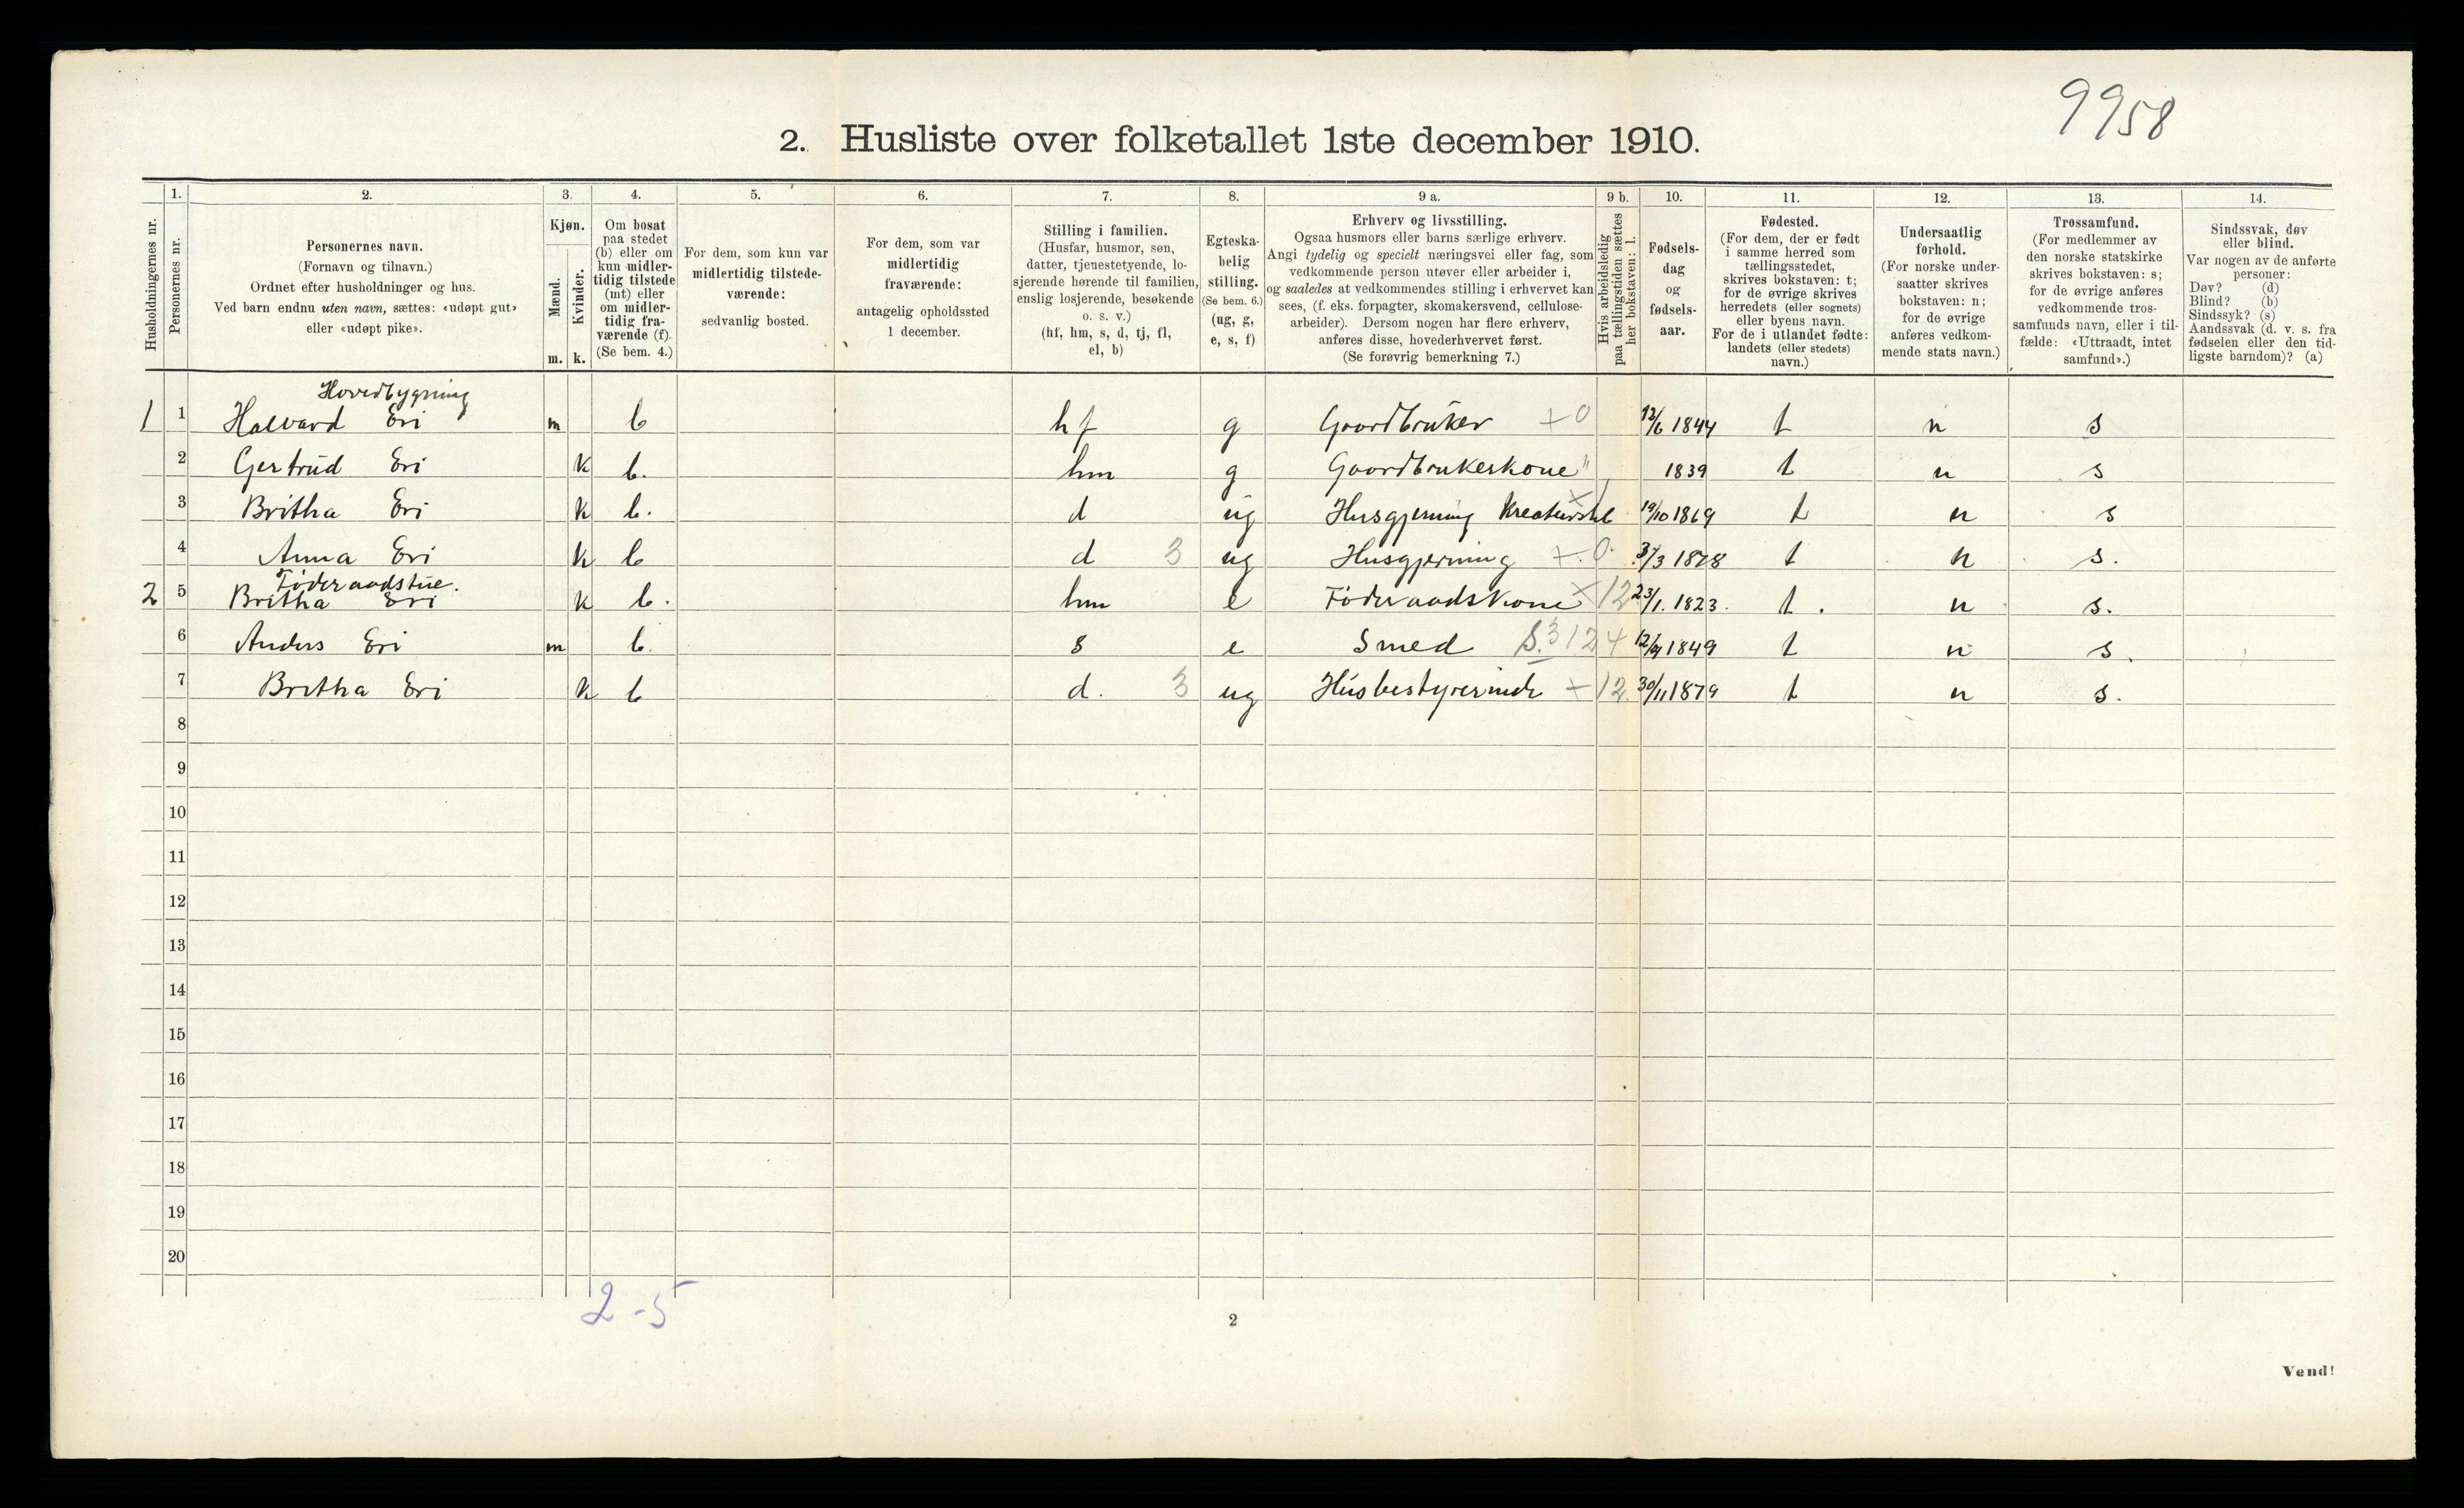 9958
2. Husliste over folketallet 1ste december 1910.
Husholdningernes nr.
1.
Personernes nr.
2.
Personernes navn.
(Fornavn og tilnavn.)
Ordnet efter husholdninger og hus.
Ved barn endnu uten navn, sættes: «udøpt gut»
eller «udøpt pike».
3.
Kjøn.
Mænd.
Kvinder.
m. k.
4.
Om bosat
paa stedet
(b) eller om
kun midler-
tidig tilstede
(mt) eller
om midler-
tidig fra-
værende (f).
(Se bem. 4.)
5.
For dem, som kun var
midlertidig tilstede-
værende:
sedvanlig bosted.
6.
For dem, som var
midlertidig
fraværende:
antagelig opholdssted
1 december.
7.
Stilling i familien.
(Husfar, husmor, søn,
datter, tjenestetyende, lo-
sjerende hørende til familien,
enslig losjerende, besøkende
o. s. v.)
(hf, hm, s, d, tj, fl,
el, b)
8.
Egteska-
belig
stilling.
(Se bem. 6.)
(ug, g,
e, s, f)
9 a.
Erhverv og livsstilling.
Ogsaa husmors eller barns særlige erhverv.
Angi tydelig og specielt næringsvei eller fag, som
vedkommende person utøver eller arbeider i,
og saaledes at vedkommendes stilling i erhvervet kan
sees, (f. eks. forpagter, skomakersvend, cellulose-
arbeider). Dersom nogen har flere erhverv,
anføres disse, hovederhvervet først.
(Se forøvrig bemerkning 7.)
9 b.
Hvis arbeidsledig
paa tællingstiden sættes
her bokstaven: l.
10.
Fødsels-
dag
og
fødsels-
aar.
11.
Fødested.
(For dem, der er født
i samme herred som
tællingsstedet,
skrives bokstaven: t;
for de øvrige skrives
herredets (eller sognets)
eller byens navn.
For de i utlandet fødte:
landets (eller stedets)
navn.)
12.
Undersaatlig
forhold.
(For norske under-
saatter skrives
bokstaven: n;
for de øvrige
anføres vedkom-
mende stats navn.)
13.
Trossamfund.
(For medlemmer av
den norske statskirke
skrives bokstaven: s;
for de øvrige anføres
vedkommende tros-
samfunds navn, eller i til-
fælde: «Uttraadt, intet
samfund».)
14.
Sindssvak, døv
eller blind.
Var nogen av de anførte
personer:
Døv? (d)
Blind? (b)
Sindssyk? (s)
Aandssvak (d. v. s. fra
fødselen eller den tid-
ligste barndom)? (a)
Hovedbygning
1 1 Halvard Eri m b hf g Gaardbruker + 0 12/6 1844 t n s
2 Gertrud Eri k b. hm g Gaardbrukerkone " 1839 t n s
3 Britha Eri k b. d ug Husgjerning Kreaturstel 19/10 1869 t n s
4 Anna Eri k b d 3 ug Husgjerning +. 0. /3 1878 t n s.
Føderaadstue.
2 5 Britha Eri k b. hm e Føderaadskone × 12 23/1. 1823. t. n s.
6 Anders Eri m b. s e Smed S.3124 12/9 1849 t n s.
7 Britha Eri k b d. 3 ug Husbestyrerinde + 12. 30/11 1879 t n s.
8
9
10
11
12
13
14
15
16
17
18
19
20
2-5
2
Vend!